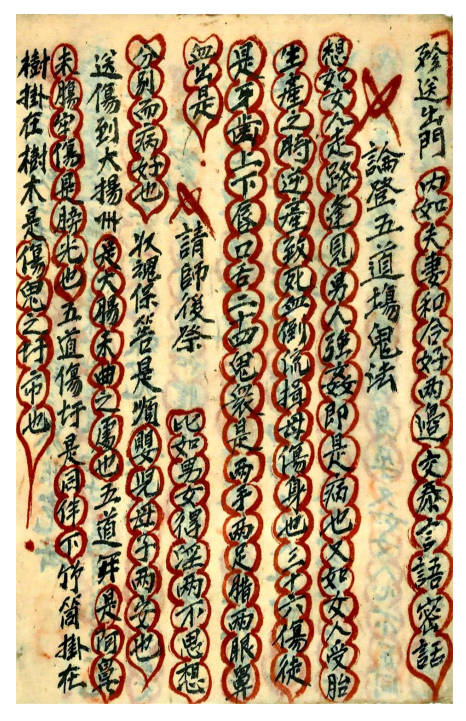 發送出門 內如夫妻和合好兩邊交泰言語密話
論登五道塲鬼法
想如女人走路逢見男人強姦即是病也又如女人受胎
生產之時逆產致死血倒流損母傷身也三十六傷徒
是牙齒上下唇口舌二十四鬼裳是兩手兩足腊兩眼鼻
血出是
請師後祭 比如男女得淫兩不思想
分別而病好也 收魂保答是順嬰兒母子兩安也
送傷到大揚州是大腸未曲之也五道是阿鼻
未腸中傷是膀光也五道傷圩是同伴下竹筒掛在
樹掛在樹木是傷鬼之圩市也